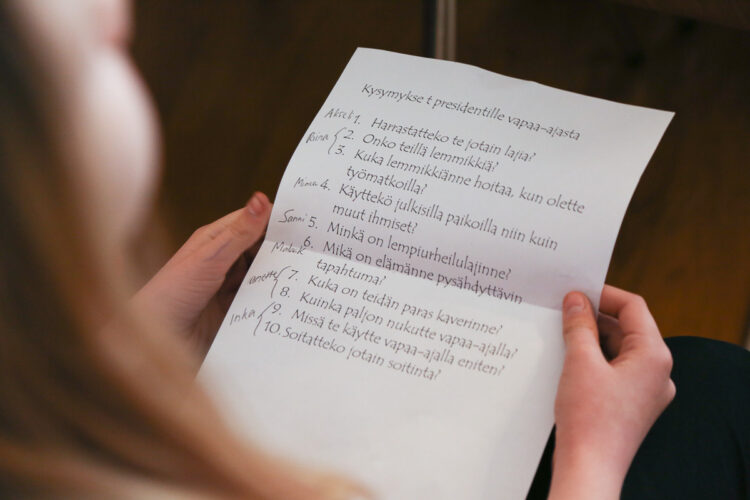 Kysymykse t presidentille vapaa-ajasta
Akseli 1. Harrastatteko te jotain lajia?
2. Onko teillä lemmikkiä?
3. Kuka lemmikkiänne hoitaa, kun olette
työmatkoilla?
4. Käyttekö julkisilla paikoilla niin kuin
muut ihmiset?
Sanni 5. Minkä on lempiurheilulajinne?
6. Mikä on elämänne pysähdyttävin
tapahtuma?
7. Kuka on teidän paras kaverinne?
8. Kuinka paljon nukutte vapaa-ajalla?
Inka 9. Missä te käytte vapaa-ajalla eniten?
10. Soitatteko jotain soitinta?